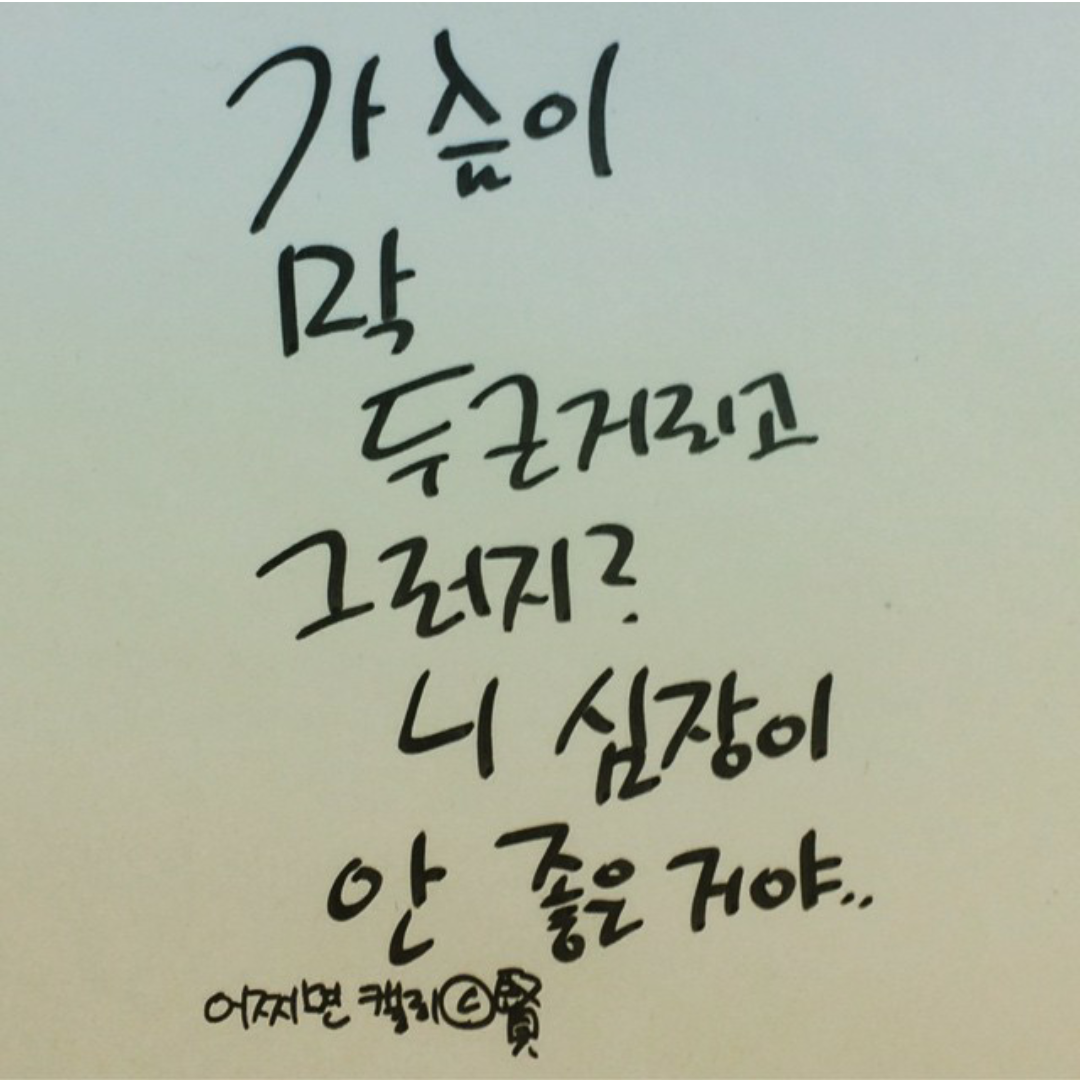 가슴이
막
두근거리고
그러지?
니 심장이
안 좋은 거야..
어쩌면 캘리ⓒ賢